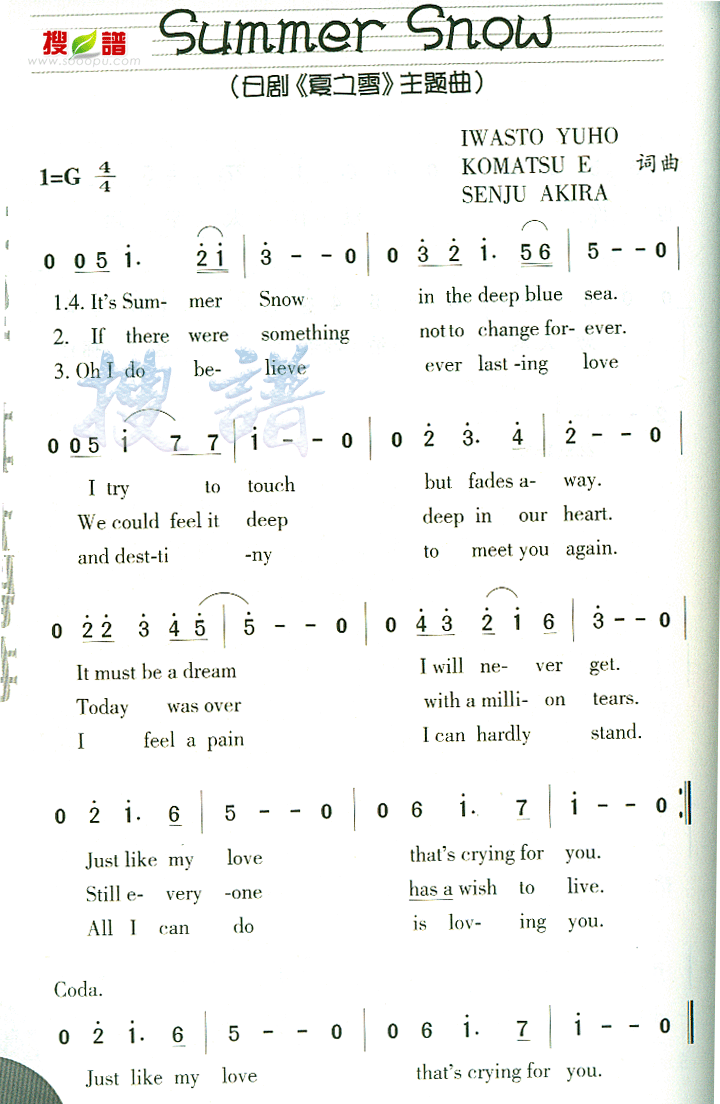 搜谱
www.sooopu.com
Summer Snow
(日剧《夏之雪》主题曲)
IWASTO YUHO
KOMATSU E 词曲
SENJU AKIRA
1=G 4/4
0 0 5 1̇. 2̇ 1̇ | 3̇ - - 0 | 0 3̇ 2̇ 1̇. 5 6 | 5 - - 0 |
1.4. It's Sum- mer Snow in the deep blue sea.
2. If there were something not to change for- ever.
3. Oh I do be- lieve ever last -ing love
搜譜
0 0 5 1̇ 7 7 | 1̇ - - 0 | 0 2̇ 3̇. 4̇ | 2̇ - - 0 |
I try to touch but fades a- way.
We could feel it deep deep in our heart.
and dest-ti -ny to meet you again.
0 2̇ 2̇ 3̇ 4̇ 5̇ | 5̇ - - 0 | 0 4̇ 3̇ 2̇ 1̇ 6 | 3̇ - - 0 |
It must be a dream I will ne- ver get.
Today was over with a milli- on tears.
I feel a pain I can hardly stand.
0 2̇ 1̇. 6 | 5 - - 0 | 0 6 1̇. 7 | 1̇ - - 0 :‖
Just like my love that's crying for you.
Still e- very -one has a wish to live.
All I can do is lov- ing you.
Coda.
0 2̇ 1̇. 6 | 5 - - 0 | 0 6 1̇. 7 | 1̇ - - 0 ‖
Just like my love that's crying for you.